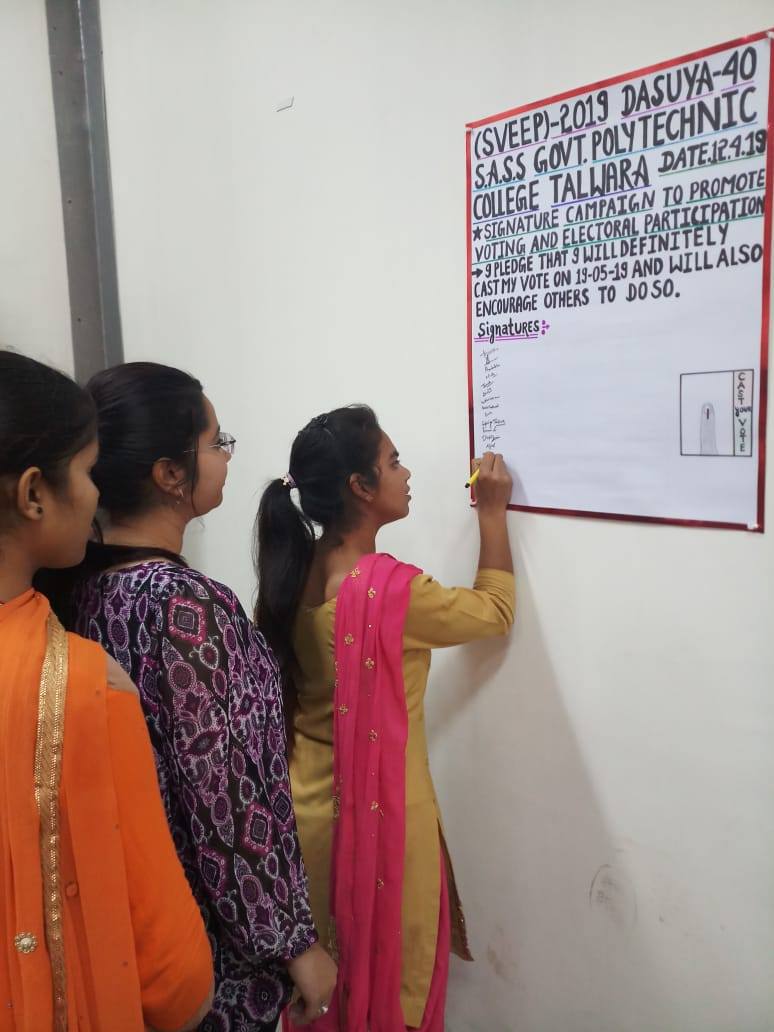 (SVEEP)-2019 DASUYA-40
S.A.S.S GOVT. POLYTECHNIC
COLLEGE TALWARA DATE.12.4.19
★SIGNATURE CAMPAIGN TO PROMOTE
VOTING AND ELECTORAL PARTICIPATION
→ I PLEDGE THAT I WILL DEFINITELY
CAST MY VOTE ON 19-05-19 AND WILL ALSO
ENCOURAGE OTHERS TO DO SO.
Signatures:
CAST
YOUR
VOTE